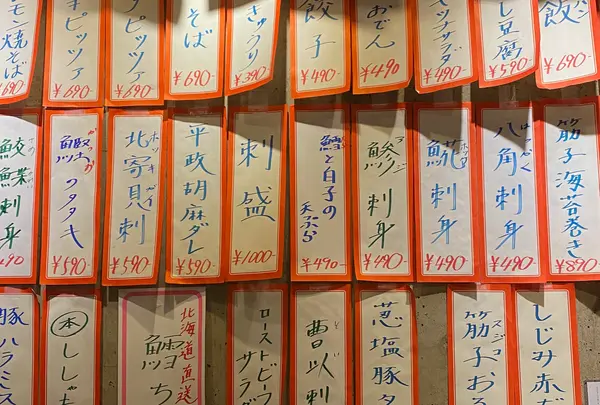 飯
¥690-
し豆腐
¥590-
ツナサラダ
¥490-
おでん
¥490-
餃子
¥490-
きゅうり
¥390-
そば
¥690-
ピッツァ
¥690-
ピッツァ
¥690-
モン焼そば
¥690-
筋子海苔巻き
¥890-
八角刺身
はっかく
¥490-
𩸽刺身
ホッケ
¥490-
鯵刺身
アジ
¥490-
鱈と白子の
天ぷら
¥490-
刺盛
¥1000-
平政胡麻ダレ
¥590-
北寄貝刺
ホッキガイ
¥590-
鰹のタタキ
¥590-
刺身
490-
しじみ赤だ
筋子おろ
スジコ
葱塩豚タ
曹以刺
ローストビーフ
サラダ
北海道直送
ち
本ししゃも
豚ハラミ